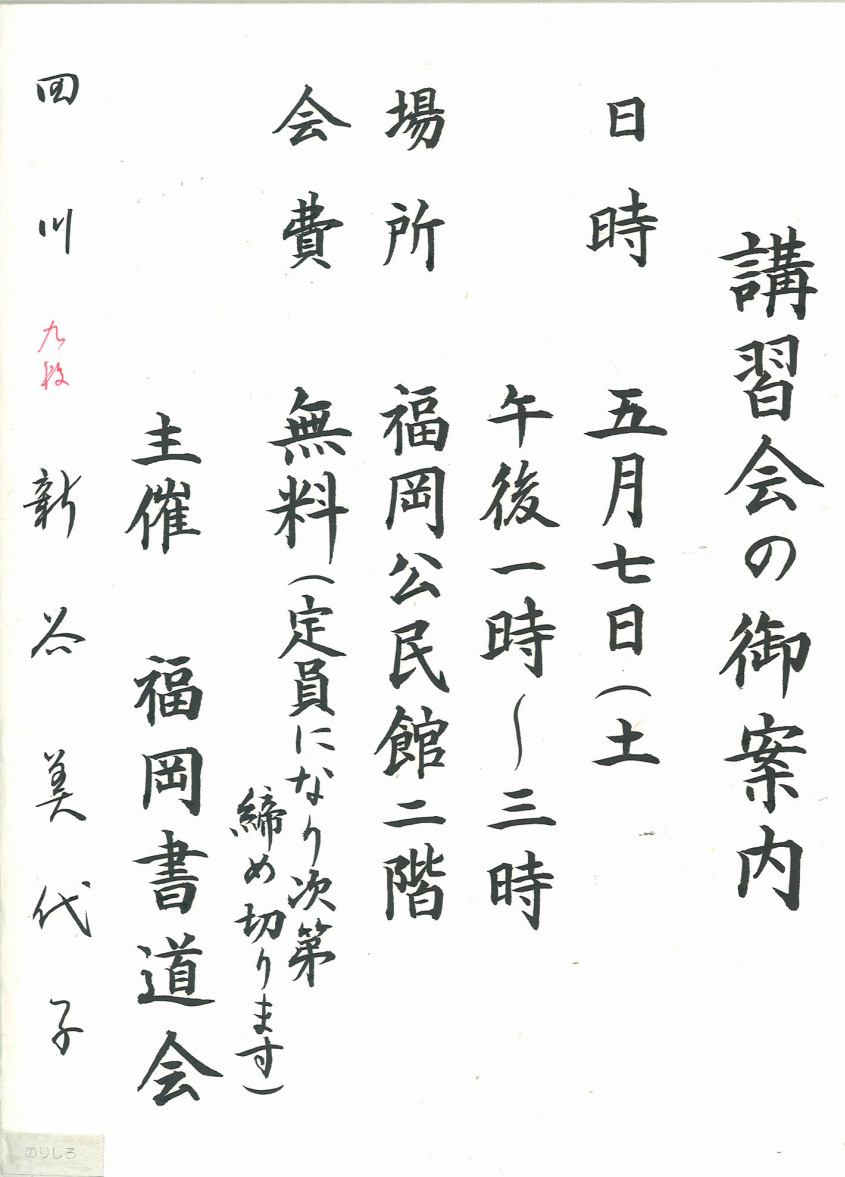 講習会の御案内
日時 五月七日(土
午後一時~三時
場所 福岡公民館二階
会費 無料(定員になり次第
締め切ります)
主催 福岡書道会
田川 九段 新谷美代子
のりしろ